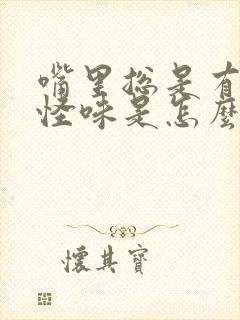 嘴里总是有
怪味是怎麼
懷其寶